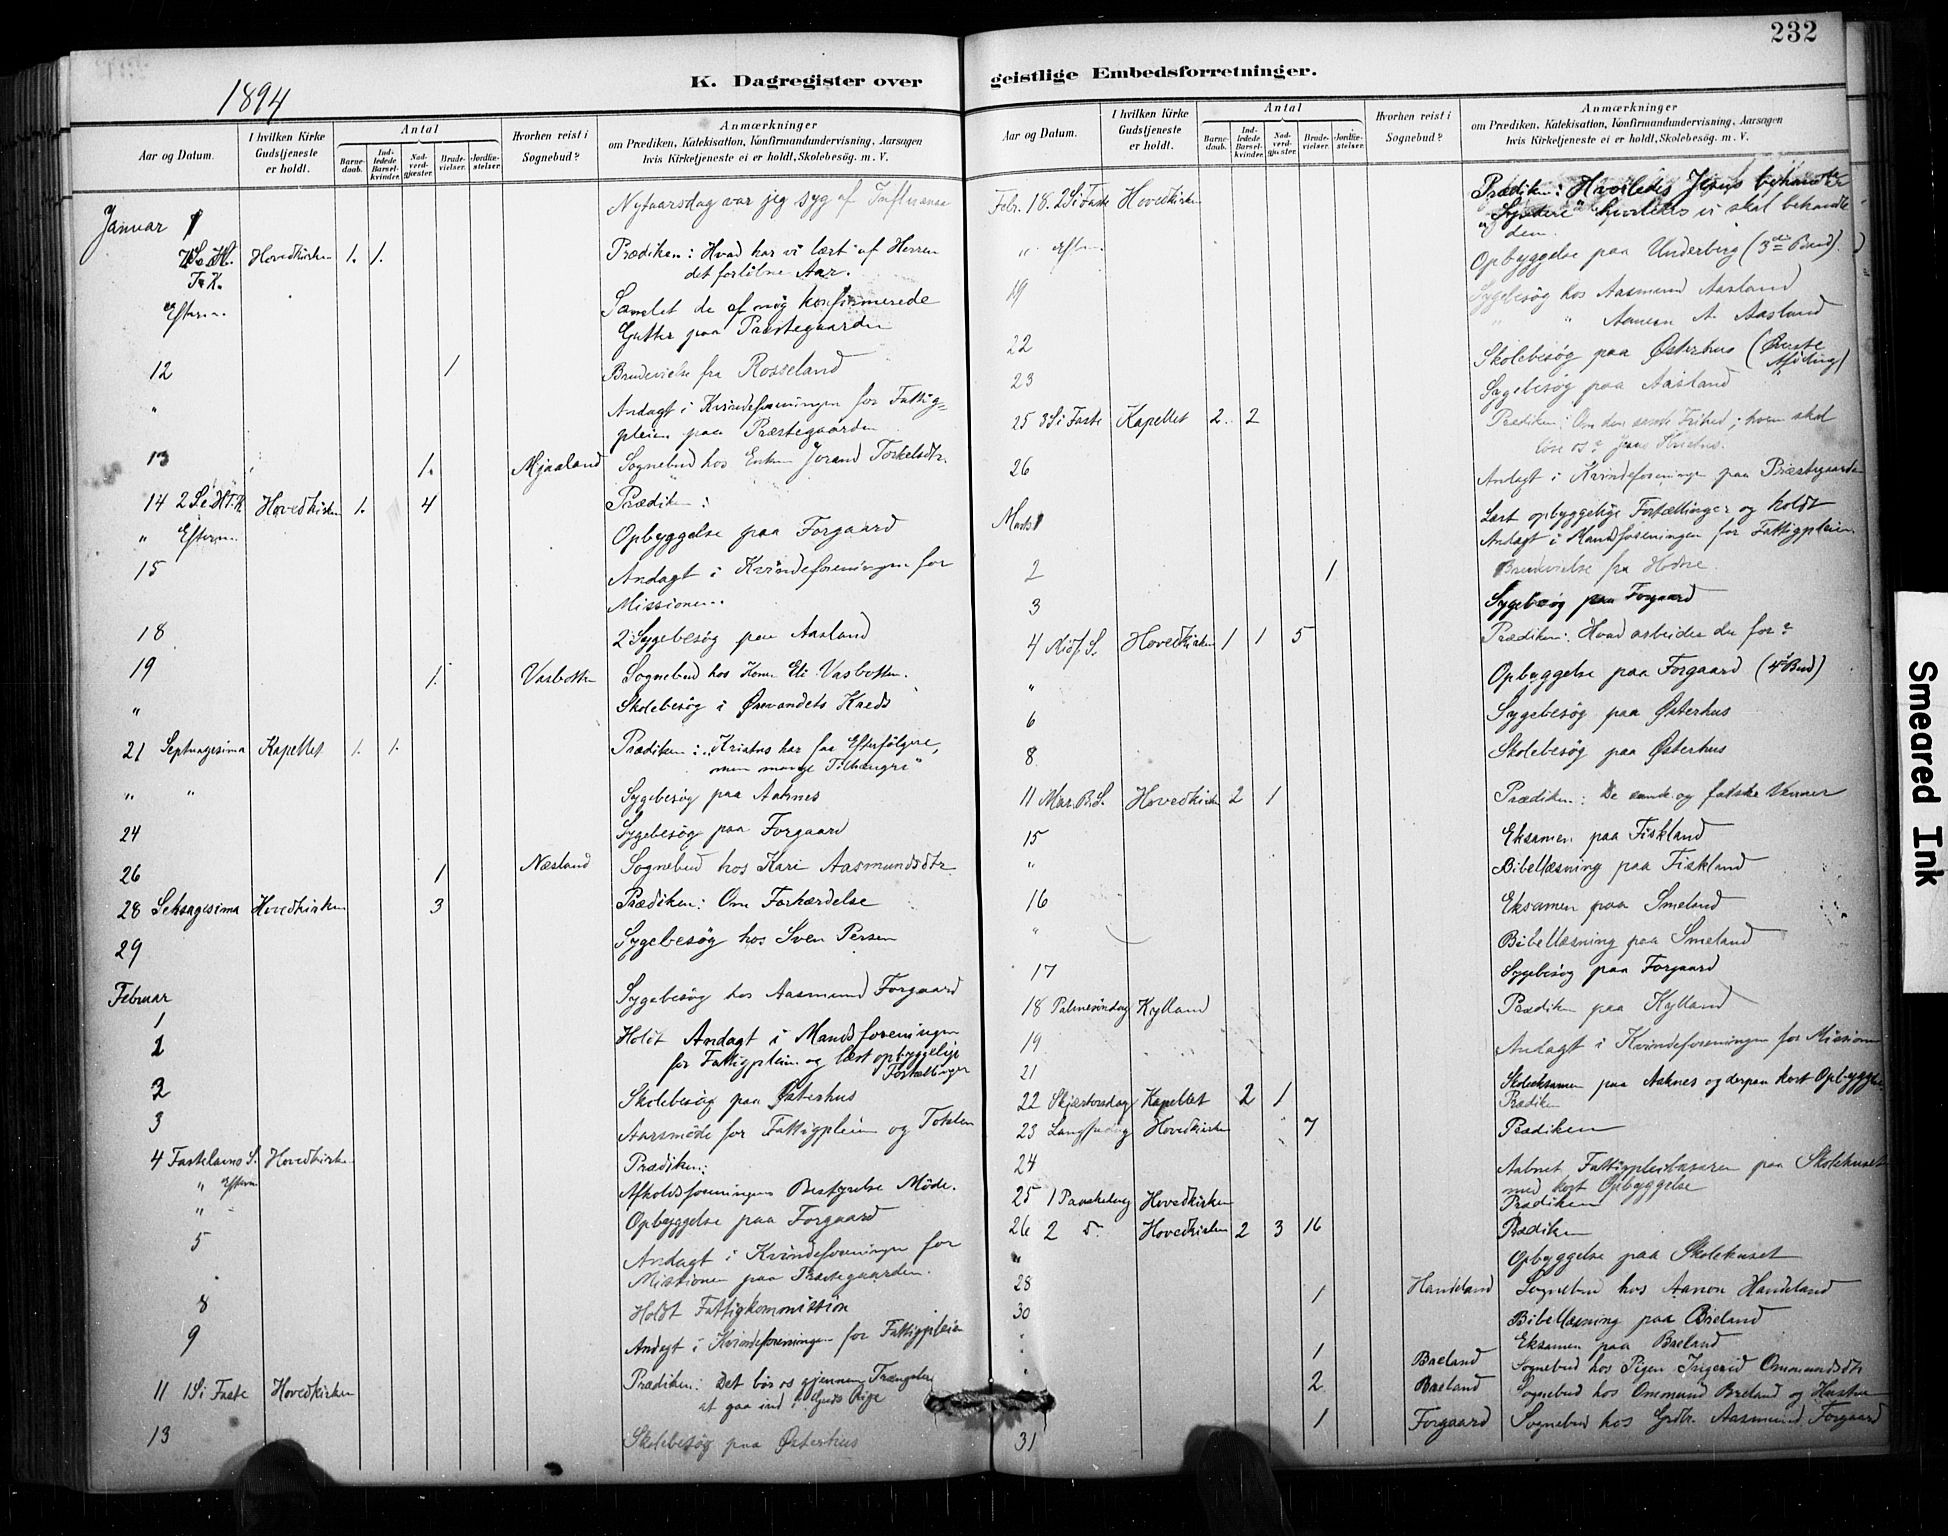 232
K. Dagregister over geistlige Embedsforretninger.
1894
Aar og Datum.
I hvilken Kirke Gudstjeneste er holdt.
Antal
Barnedaab.
Indledede Barselkvinder.
Nadverdgjæster.
Brudevielser.
Jordfæstelser.
Hvorhen reist i Sognebud?
Anmærkninger
om Prædiken, Katekisation, Konfirmandundervisning, Aarsagen
hvis Kirketjeneste ei er holdt, Skolebesøg. m. V.
Januar 1 Nytaarsdag var jeg syg af Influensa
7 S. Hovedkirken 1. 1. Prædiken: Hvad har vi lært af Herren
det forløbne Aar.
Eftern. Samlet de af mig konfirmerede
Gutter paa Præstegaarden
12 1 Brudevielse fra Rosseland
" Andagt i Kvindeforeningen for Fattig=
pleien paa Præstegaarden
13 1. Mjaaland Sognebud hos Enken Jorand Torkelsdtr.
14 2 S. i H.T.K. Hovedkirken 1. 4 Prædiken:
" Eftern. Opbyggelse paa Forgaard
15 Andagt i Kvindeforeningen for
Missionen.
18 2 Sygebesøg paa Aasland
19 1. Vasbotten Sognebud hos Kone Eli Vasbotten.
" Skolebesøg i Kreds
21 Septuagesima Kapellet 1. 1. Prædiken: "Kristus har faa Efterfølgere,
men mange Tilhængre"
" " Sygebesøg paa Aaknes
24 Sygebesøg paa Forgaard
26 1 Næsland Sognebud hos Kari Aasmundsdtr
28 Seksagesima Hovedkirken 3 Prædiken: Om Forhærdelse
29 Sygebesøg hos Sven Persen
Februar
1 Sygebesøg hos Aasmund Forgaard
1 Holdt Andagt i Mandsforeningen
for Fattigpleien og læst opbyggelige
Fortællinger
2 Skolebesøg paa Østerhus
3 Aarsmøde for Fattigpleien og
4 Fastelavns S. Hovedkirken Prædiken:
" Eftern Afholdsforeningens Bestyrelse Møde.
" Opbyggelse paa Forgaard
5 Andagt i Kvindeforeningen for
Missionen paa Præstegaarden.
8 Holdt Fattigkommission
9 Andagt i Kvindeforeningen for Fattigpleien
11 1 S i Faste Hovedkirken Prædiken: Det bør os gjennem Trængsler
at gaa ind i Guds Rige
13 Skolebesøg paa Østerhus
Aar og Datum.
I hvilken Kirke Gudstjeneste er holdt.
Antal
Barnedaab.
Indledede Barselkvinder.
Nadverdgjæster.
Brudevielser.
Jordfæstelser.
Hvorhen reist i Sognebud?
Anmærkninger
om Prædiken, Katekisation, Konfirmandundervisning, Aarsagen
hvis Kirketjeneste ei er holdt, Skolebesøg. m. V.
Febr. 18. 2 S i Faste Hovedkirken Prædiken: Hvorledes Jesus behandler
"Syndere" og hvorledes vi skal behandle
dem.
" Eftern. Opbyggelse paa Underberg (3die Bud).
19 Sygebesøg hos Aasmund Aasland
" " A. Aasland
22 Skolebesøg paa Østerhus
23 Sygebesøg paa Aasland
25 3 S i Faste Kapellet 2. 2 Prædiken: Om den sande Frihed; hvem skal
løse os? Jesus Kristus.
26 Andagt i Kvindeforeningen paa Præstegaarden
Marts 1 Læst opbyggelige Fortællinger og holdt
Andagt i Mandsforeningen for Fattigpleien
2 1 Brudevielse fra
3 Sygebesøg paa Forgaard
4 Midf. S. Hovedkirken 1 1 5 Prædiken: Hvad arbeider du for?
" Opbyggelse paa Forgaard (4 Bud)
6 Sygebesøg paa Østerhus
8 Skolebesøg paa Østerhus
11 Mar. B. S. Hovedkirken 2 1 Prædiken: De sande og falske Venner
15 Eksamen paa Fiskland
" Bibellæsning paa Fiskland
16 Eksamen paa Smeland
" Bibellæsning paa Smeland
17 Sygebesøg paa Forgaard
18 Palmesøndag Kylland Prædiken paa Kylland
19 Andagt i Kvindeforeningen for Missionen
21 Skoleeksamen paa Aaknes og derpaa kort Opbyggelse
22 Skjærtorsdag Kapellet 2 1 Prædiken
23 Langfredag Hovedkirken 7 Prædiken
24 Aabnet Fattigpleiebasaren paa Skolehuset
med kort Opbyggelse
25 1 Paaskedag Hovedkirken Prædiken
26 2 D. Hovedkirken 2 3 16 Prædiken
" Opbyggelse paa Skolehuset
28 1 Handeland Sognebud hos Aanon Handeland
30 Bibellæsning paa Breland
" Eksamen paa Breland
" 1 Breland Sognebud hos Pigen Ingerid Omundsdtr
" 2 Breland Sognebud hos Omund Breland og Hustru
31 1 Forgaard Sognebud hos Grdbr. Aasmund Forgaard
Smeared Ink